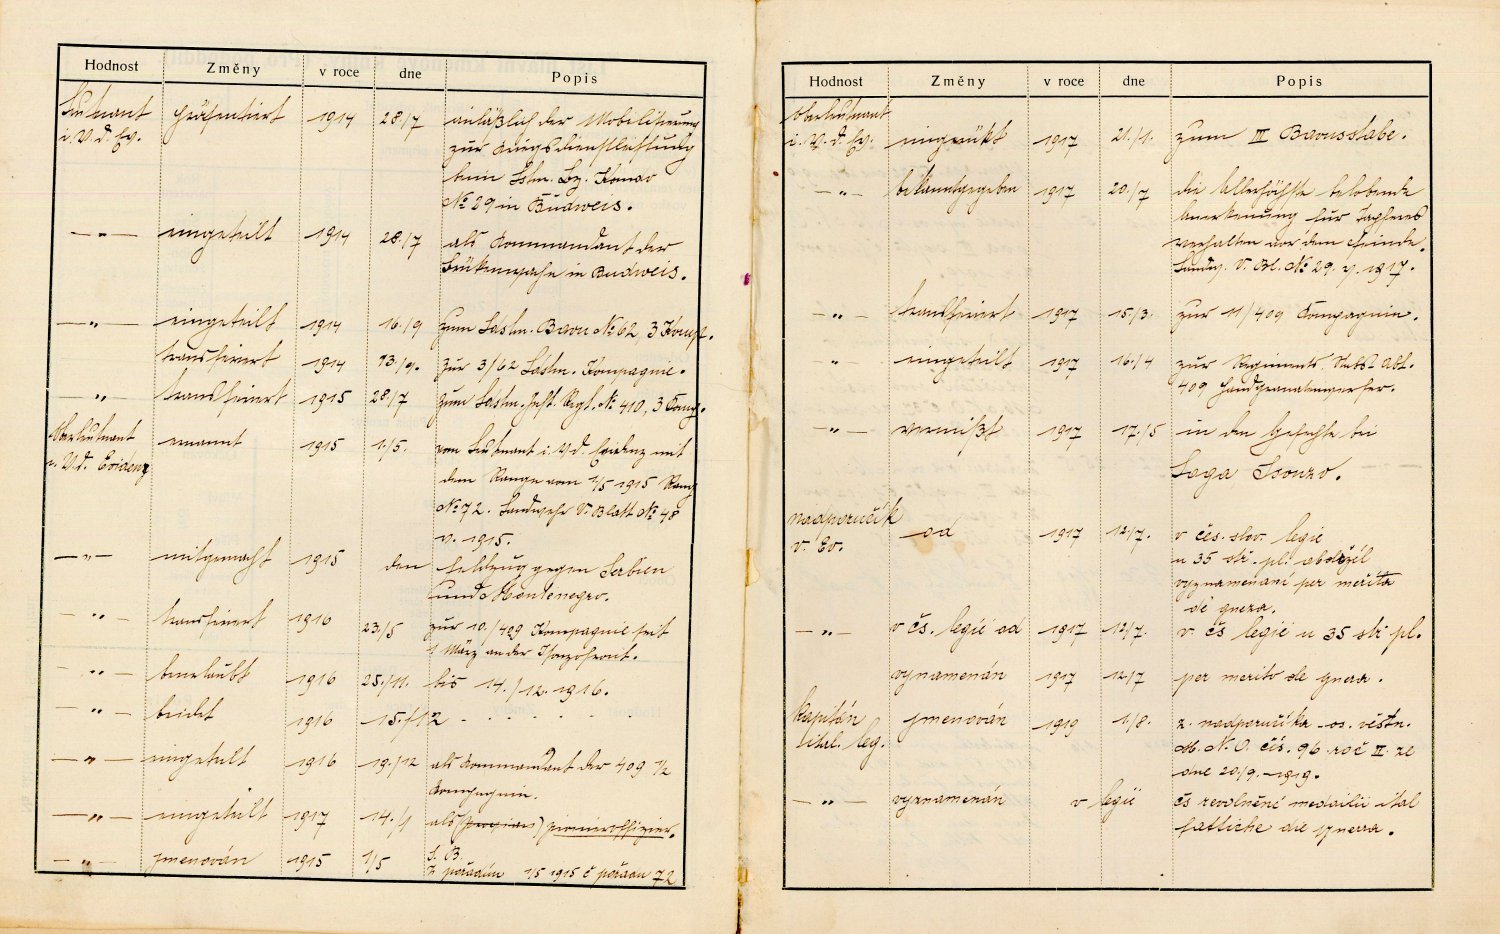 Hodnost Změny v roce dne Popis
Leutnant präsentiert 1914 28./7 anläßlich der Mobilisierung
i. V. d. Ev. zur Kriegsdienstleistung
beim Lstm. Bz. Komdo
№ 29 in Budweis.
—„— eingeteilt 1914 28./7 als Kommandant der
Brükenwache in Budweis.
—„— eingeteilt 1914 16./9 zum Lastm. Baon № 62, 3 Komp.
transferiert 1914 13./9. zur 3/62 Lastm. Kompagnie.
„ transferiert 1915 28./7 zum Lastm. Inft. Rgt. № 410, 3 Comp.
Oberleutnant ernannt 1915 1./5. vom Leutnant i. V. d. Evidenz mit
V. d. Evidenz dem Range vom 1/5 1915 Rang
№ 72. Landwehr V. Blatt № 48
v. 1915.
—„— mitgemacht 1915 den Feldzug gegen Serbien
und Montenegro.
—„ transferiert 1916 23./5 zur 10./409 Kompagnie seit
1 März an der Isonzofront.
„— beurlaubt 1916 25./11. bis 14./12. 1916.
—„— beidet 1916 15./12 - . . . . .
—„— eingeteilt 1916 19./12 als Kommandant der 409 1/2
Kompagnie.
—„— eingeteilt 1917 14./1 als pionieroffizier.
S. B.
—„— jmenován 1915 1/5 z pořadím 1/5 1915 č pořadn 72
Hodnost Změny v roce dne Popis
Oberleutnant
i. V. d. Ev. eingerükt 1917 21./1. zum III Baonsstabe.
—„— bekanntgegeben 1917 20./7 die Allerhöchste belobende
Anerkenung für Tapferes
verhalten vor dem Feinde.
Landw. V. Bl. № 29. v. 1917.
—„— transferiert 1917 15./3. zur 11/409 Compagnie.
„ eingeteilt 1917 16./4 zur Regiments Abt.
409 Handgranatenwerfer.
—„— vermißt 1917 17./5 in den Gefechte bei
Loga Isonzo.
nadporučík od 1917 12/7. v čes. slov. legie
v. Ev. u 35 stř. pl. obdržel
vyznamenání per merita
de guera.
—„— v čs. legie od 1917 12/7. v čs legie u 35 stř pl.
vyznamenán 1917 12/7 per merito de guera.
Kapitán jmenován 1919 1./8. z. nadporučíka - os. věstn.
ital. leg. M. N. O. čís. 96 roč II. ze
dne 20./9. - 1919.
—„— vyznamenán v legii čs revoluční medailii ital
fattiche die guerra.